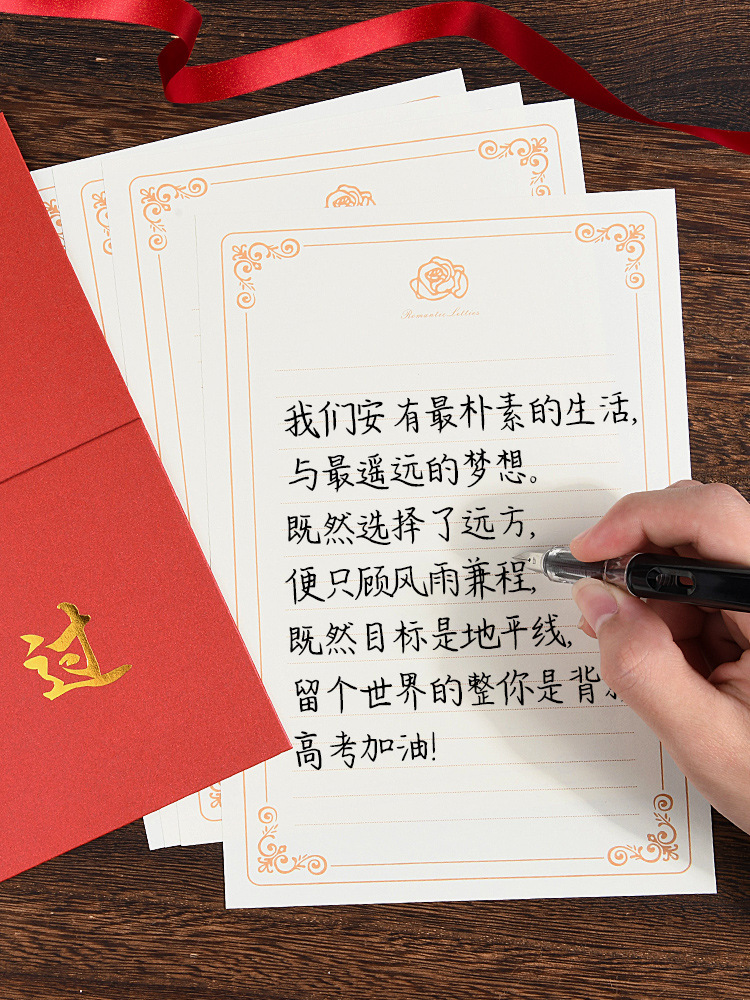 Romantic Letters
我们安有最朴素的生活,
与最遥远的梦想。
既然选择了远方,
便只顾风雨兼程,
既然目标是地平线,
留个世界的整你是背
高考加油!
过